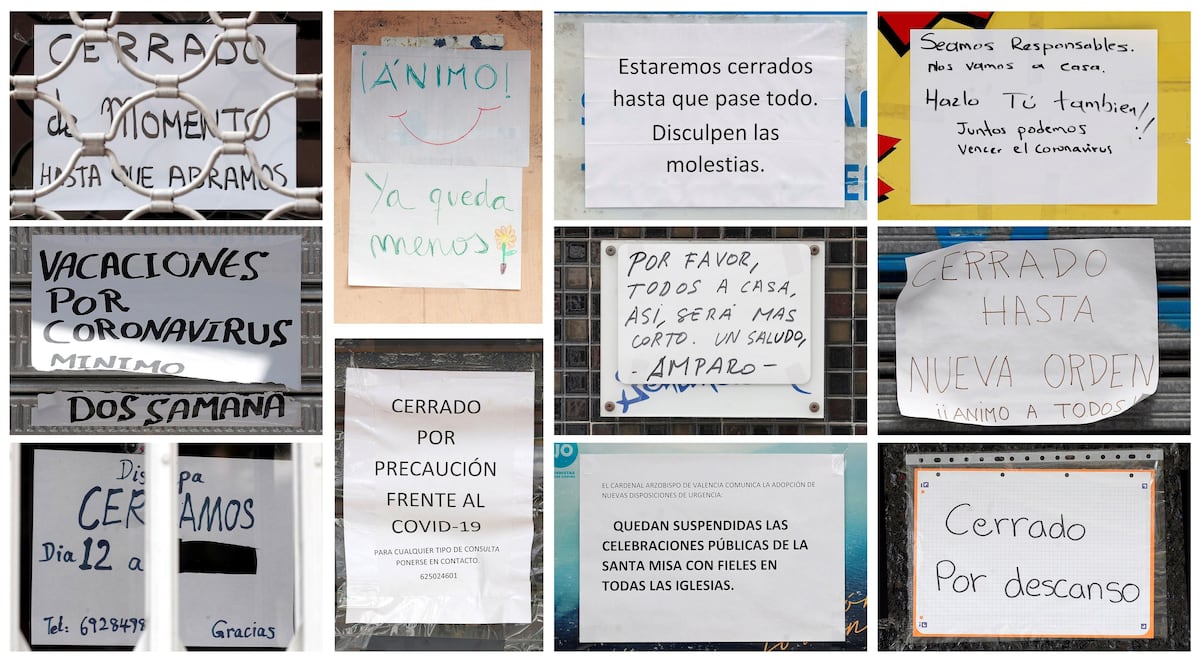 CERRADO
de MOMENTO
HASTA QUE ABRAMOS
¡ÁNIMO!
Ya queda
menos
Estaremos cerrados
hasta que pase todo.
Disculpen las
molestias.
Seamos Responsables.
Nos vamos a casa.
Hazlo Tú tambien!!
Juntos podemos
vencer el coronavirus
VACACIONES
POR
CORONAVIRUS
MINIMO
DOS SAMANA
POR FAVOR,
TODOS A CASA,
ASI, SERÁ MAS
CORTO. UN SALUDO,
- AMPARO -
CERRADO
HASTA
NUEVA ORDEN
¡¡ANIMO A TODOS!
CERRADO
POR
PRECAUCIÓN
FRENTE AL
COVID-19
PARA CUALQUIER TIPO DE CONSULTA
PONERSE EN CONTACTO.
625024601
Dia 12 a
Tel: 6928498
Gracias
EL CARDENAL ARZOBISPO DE VALENCIA COMUNICA LA ADOPCIÓN DE
NUEVAS DISPOSICIONES DE URGENCIA:
QUEDAN SUSPENDIDAS LAS
CELEBRACIONES PÚBLICAS DE LA
SANTA MISA CON FIELES EN
TODAS LAS IGLESIAS.
Cerrado
Por descanso